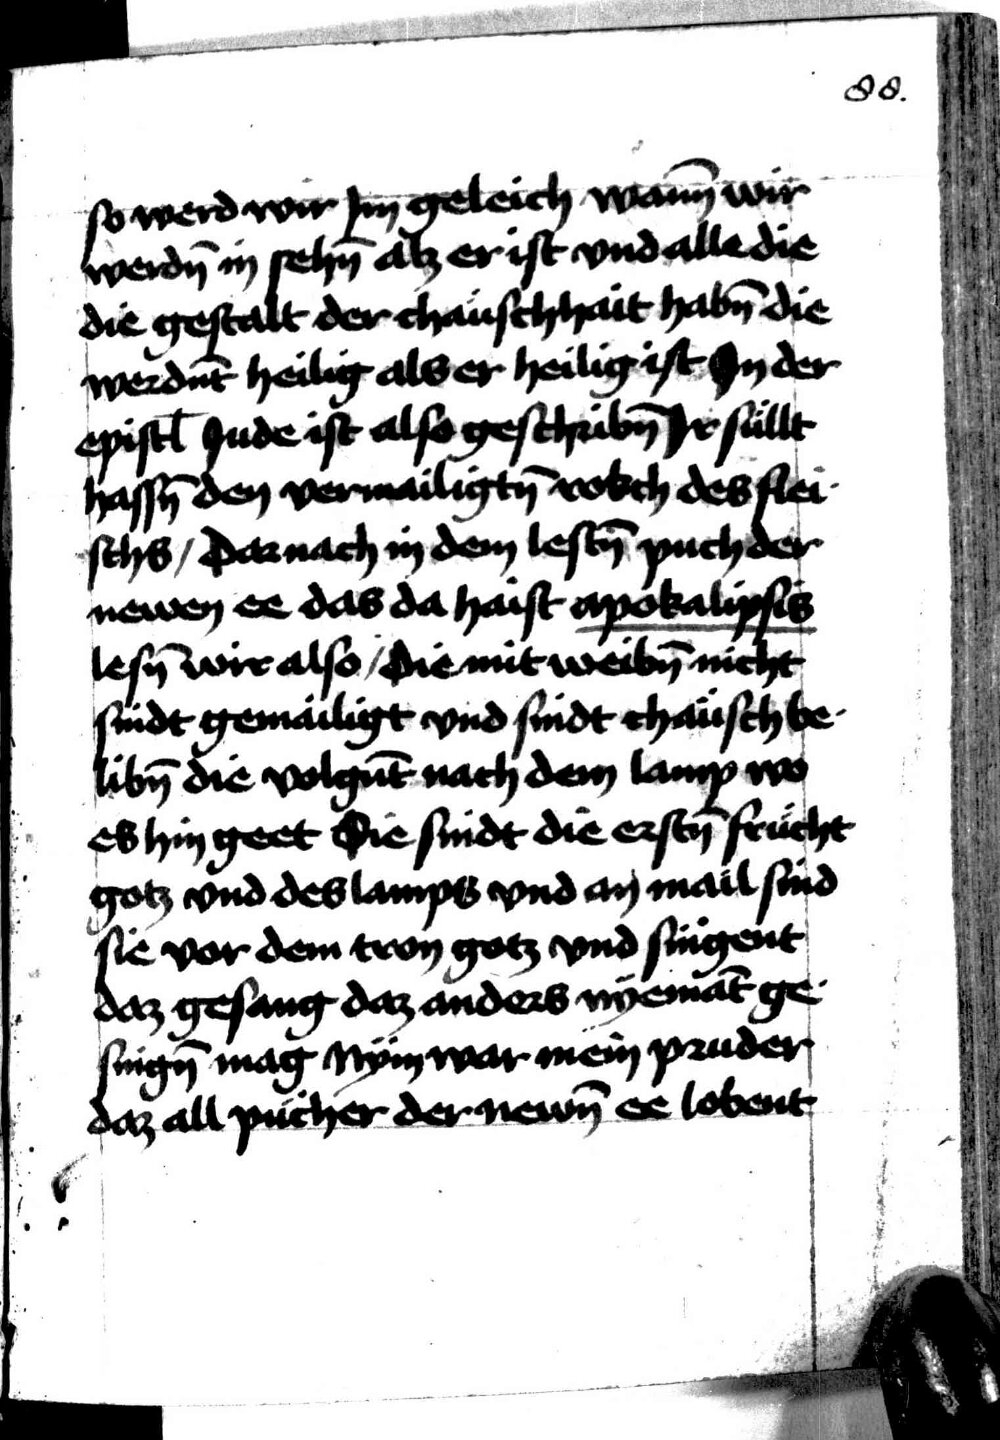 88.
so werd wir Im geleich wann̄ wir
werdn̄ in sehn̄ alz er ist vnd alle die
die gestalt der chäuschhait habn̄ die
werdnt̄ heilig als er heilig ist In der
epistl̄ Jude ist also geschribn̄ Ir süllt
hassn̄ den vermailigtn̄ rokch des flei
schs / Darnach in dem lestn̄ puch der
newen ee das da haist apokalipsis
lesn̄ wir also / Die mit weibn̄ nicht
sindt gemäiligt vnd sindt chäusch be
libn̄ die volgnt̄ nach dem lamp wo
es hin geet Die sindt die erstn̄ frücht
gotz vnd des lamps vnd an mail sind
sie vor dem tron gotz vnd singent
daz gesang daz anders nÿemāt ge
singn̄ mag Nÿm war mein pruder
daz all pücher der newn̄ ee lobent